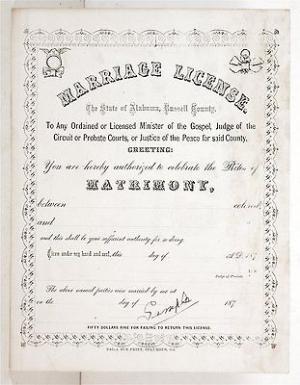 MARRIAGE LICENSE.
The State of Alabama, Russell County.
To Any Ordained or Licensed Minister of the Gospel, Judge of the
Circuit or Probate Courts, or Justice of the Peace for said County.
GREETING:
You are hereby authorized to celebrate the Rites of
MATRIMONY,
between colored,
and
and this shall be your sufficient authority for so doing.
Given under my hand and seal, this day of A.D. 187
Judge of Probate.
The above named parties were married by me at
on the day of 187
FIFTY DOLLARS FINE FOR FAILING TO RETURN THIS LICENSE.